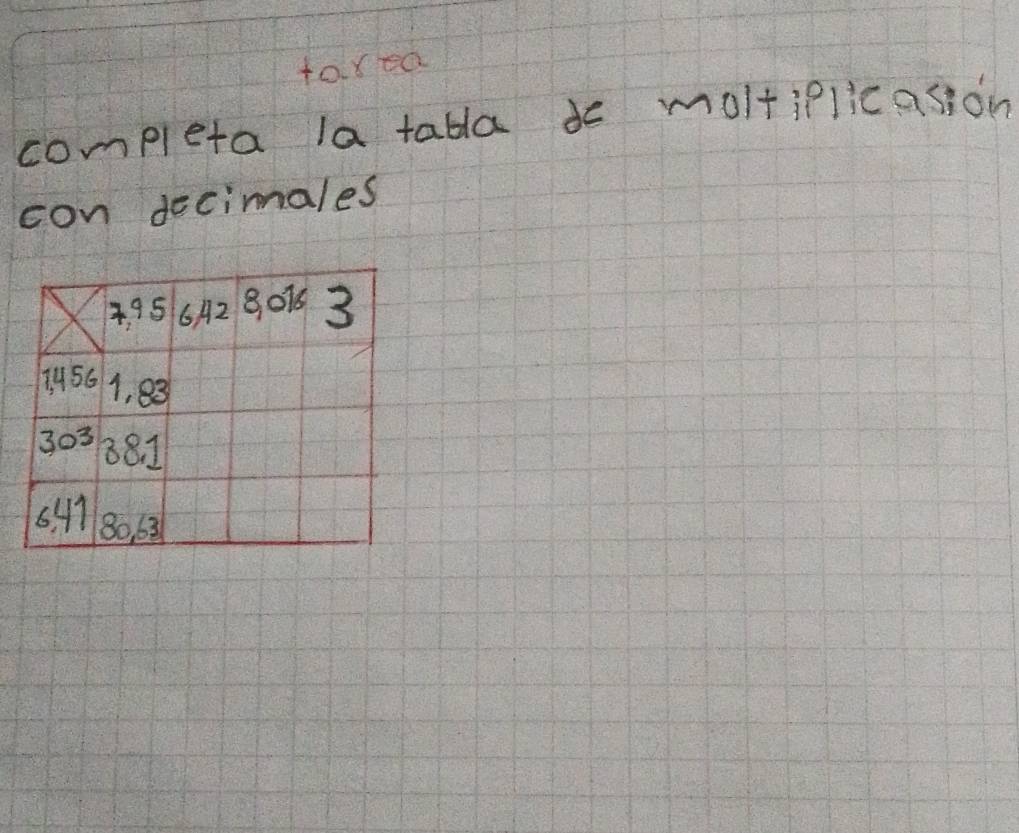 tarea
completa la tabla de moltiplicasión
con decimales
7,95 6,42 8,016 3
1,456 1,83
303 38,1
6,41 80,63